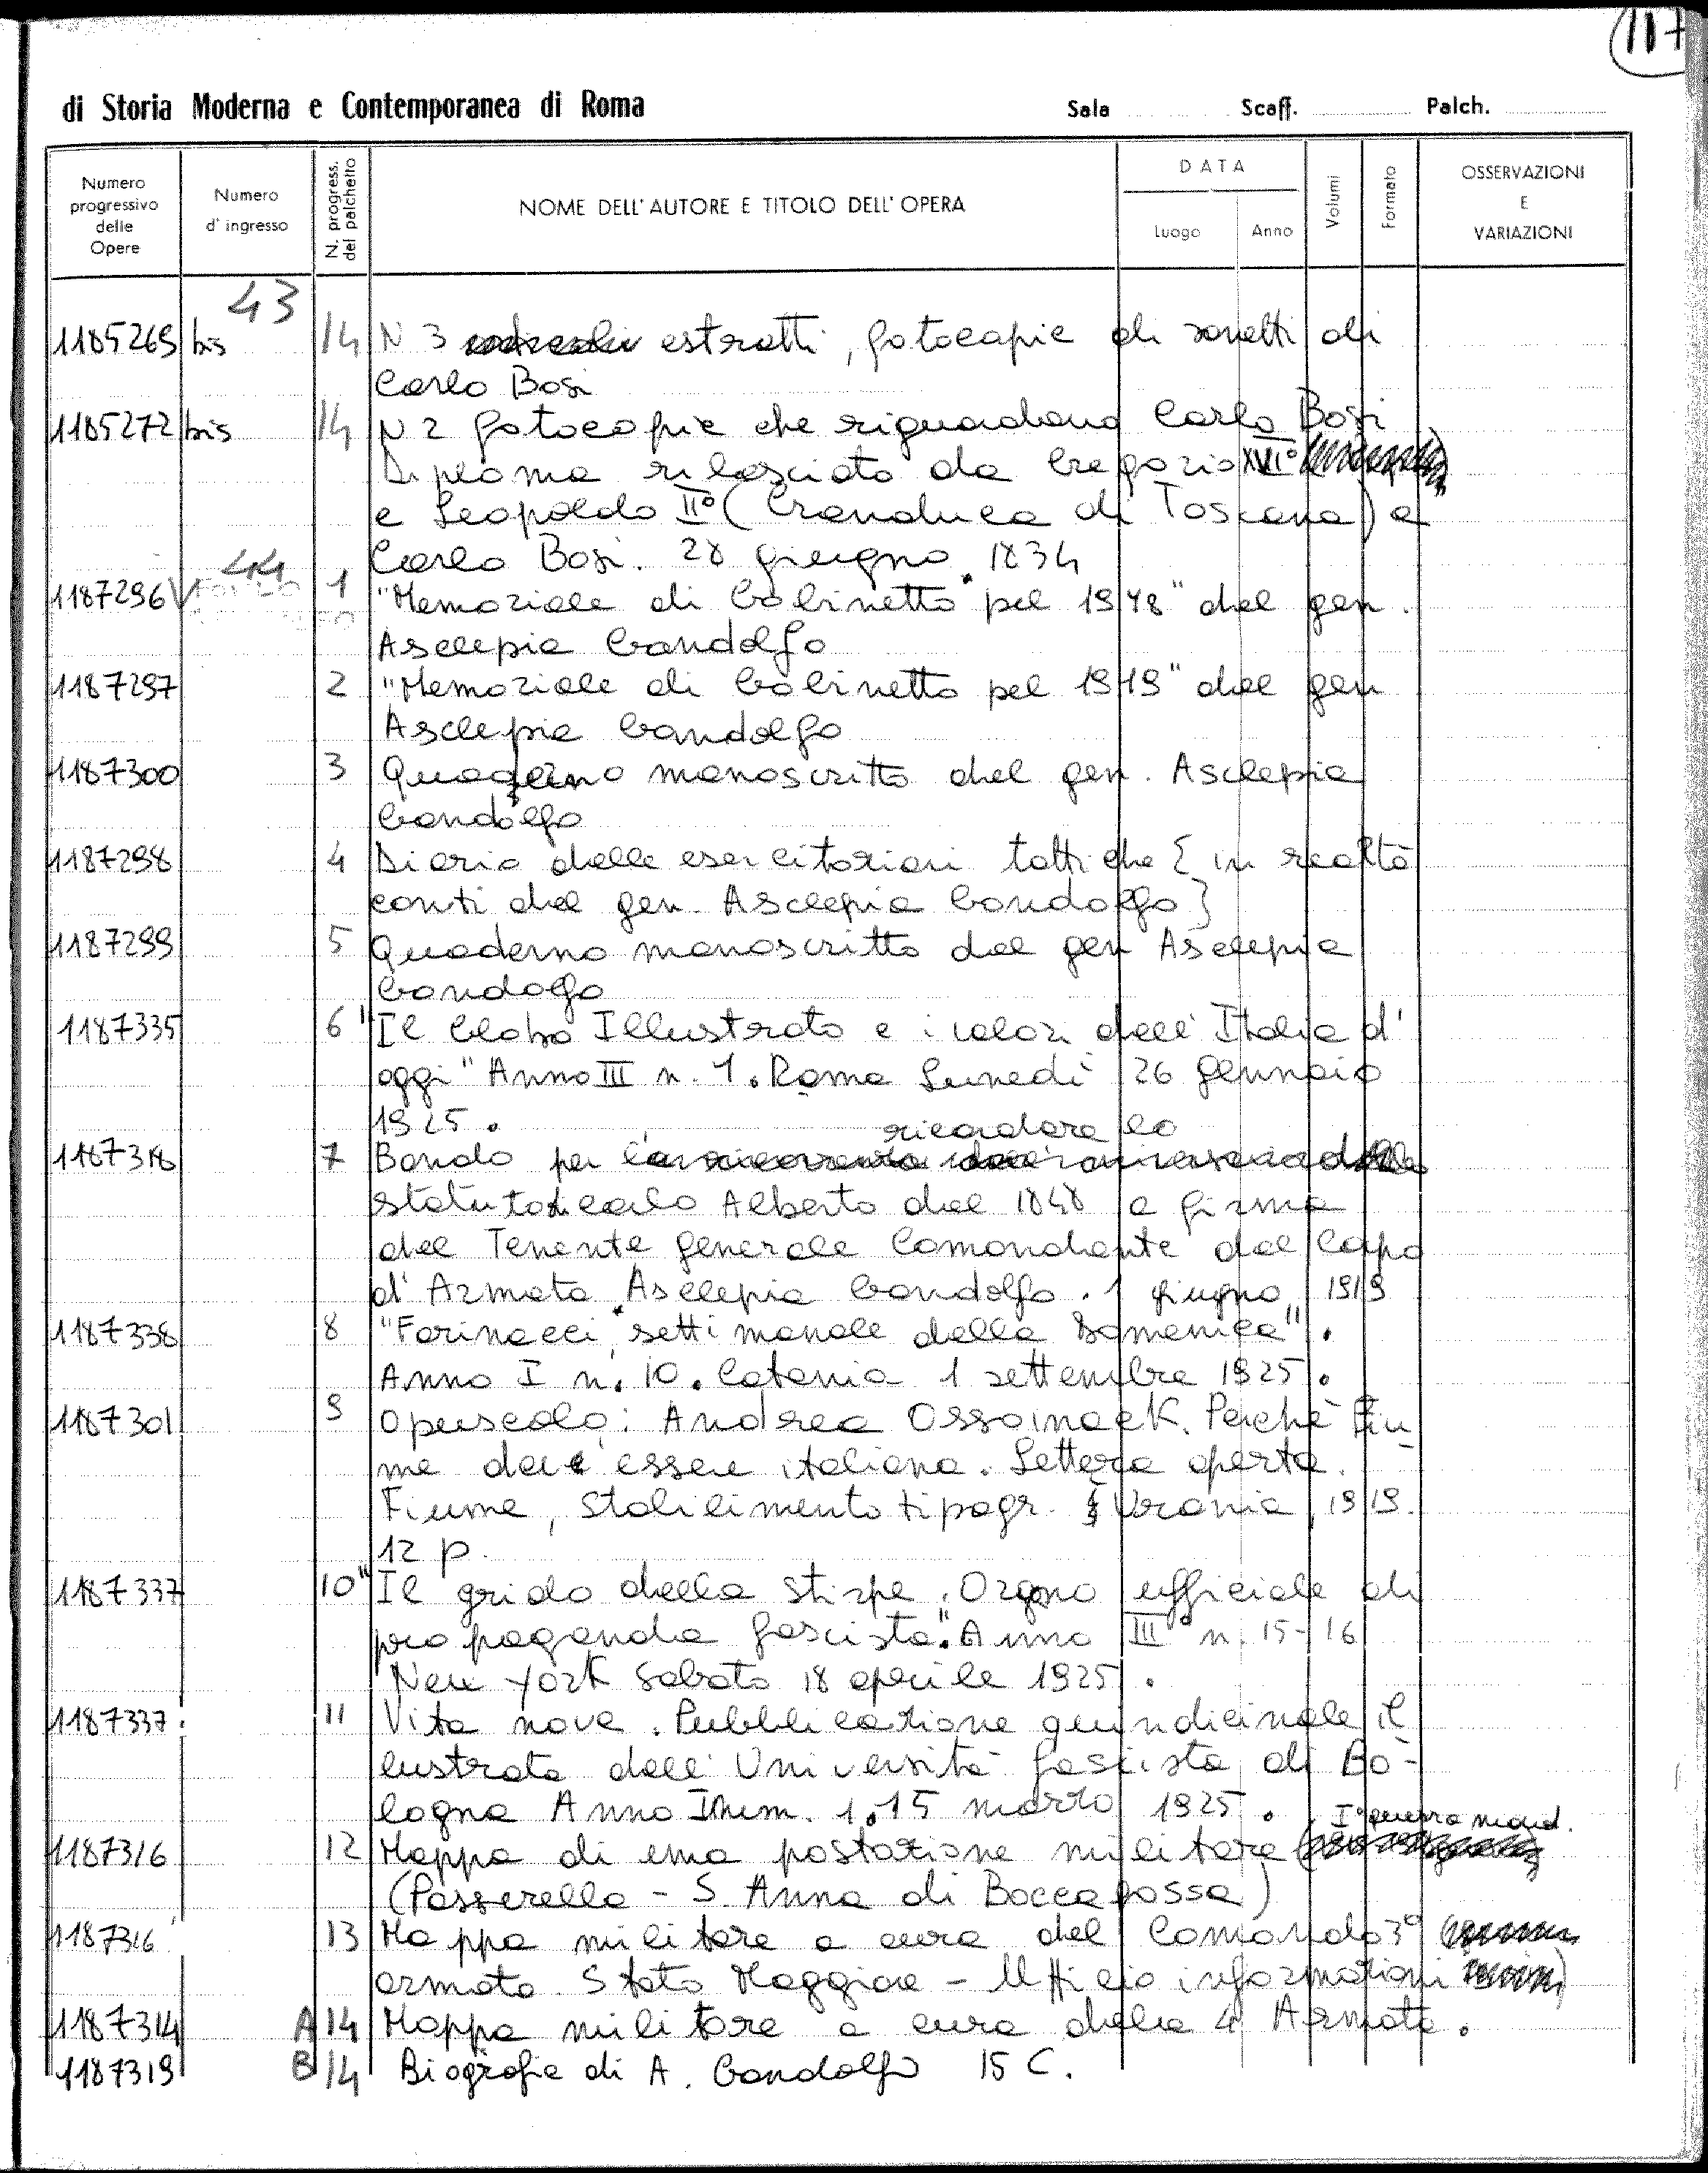 117
di Storia Moderna e Contemporanea di Roma Sala Scaff. Palch.
Numero progressivo delle Opere
Numero d' ingresso
N. progress. del palchetto
NOME DELL' AUTORE E TITOLO DELL' OPERA
DATA
Luogo Anno
Volumi
Formato
OSSERVAZIONI E VARIAZIONI
43
1185269 bis 14 N 3 estratti, fotocopie di sonetti di
Carlo Bosi
1185272 bis 14 N 2 fotocopie che riguardano Carlo Bosi
Diploma rilasciato da Gregorio XVI°
e Leopoldo II° (Granduca di Toscana) a
Carlo Bosi. 28 giugno 1834
44
1187296 1 "Memoriale di Gabinetto pel 1918" del gen.
Asclepia Gandolfo
1187297 2 "Memoriale di Gabinetto pel 1919" del gen
Asclepia Gandolfo
1187300 3 Quaderno manoscritto del gen. Asclepia
Gandolfo
1187298 4 Diario delle esercitazioni tattiche [in realtà
conti del gen. Asclepia Gandolfo]
1187299 5 Quaderno manoscritto del gen Asclepia
Gandolfo
1187335 6 "Il Globo Illustrato e i valori dell'Italia d'
oggi" Anno III n. 1. Roma Lunedì 26 gennaio
1925.
ricordare lo
1187318 7 Bando per
statuto di Carlo Alberto del 1848 a firma
del Tenente generale Comandante del Capo
d'Armata Asclepia Gandolfo. 1 giugno 1919
1187338 8 "Farinacci, settimanale della Domenica".
Anno I n. 10. Catania 1 settembre 1925.
1187301 9 Opuscolo: Andrea Ossoinack. Perchè Fiu-
me deve essere italiana. Lettera aperta.
Fiume, Stabilimento tipogr. Urania, 1919.
12 p.
1187337 10 "Il grido della stirpe. Organo ufficiale di
propaganda fascista". Anno III° n. 15-16
New York Sabato 18 aprile 1925.
1187337 11 Vita nova. Pubblicazione quindicinale il
lustrata dell'Università fascista di Bo-
logna Anno I num. 1. 15 marzo 1925.
I° guerra mond.
1187316 12 Mappa di una postazione militare
(Passerella - S. Anna di Boccafossa)
1187316 13 Mappa militare a cura del Comando 3°
armata. Stato Maggiore - Ufficio informazioni
1187314 A 14 Mappa militare a cura della 4 Armata.
1187319 B 14 Biografie di A. Gandolfo 15 C.